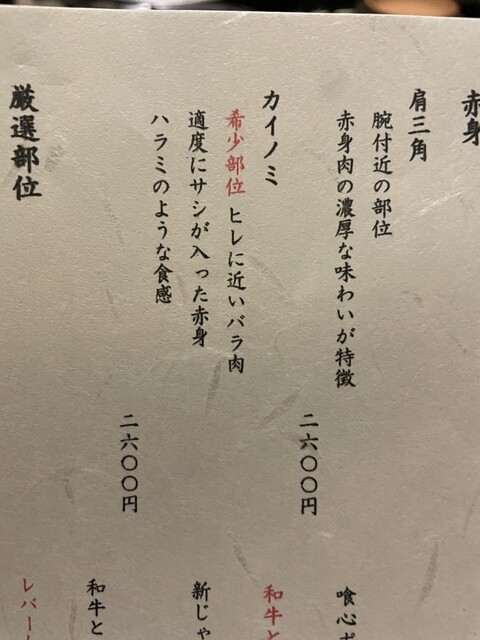 赤身
肩三角
腕付近の部位
赤身肉の濃厚な味わいが特徴
二六〇〇円
カイノミ
希少部位 ヒレに近いバラ肉
適度にサシが入った赤身
ハラミのような食感
二六〇〇円
厳選部位
喰心
和牛と
新じゃ
和牛と
レバー